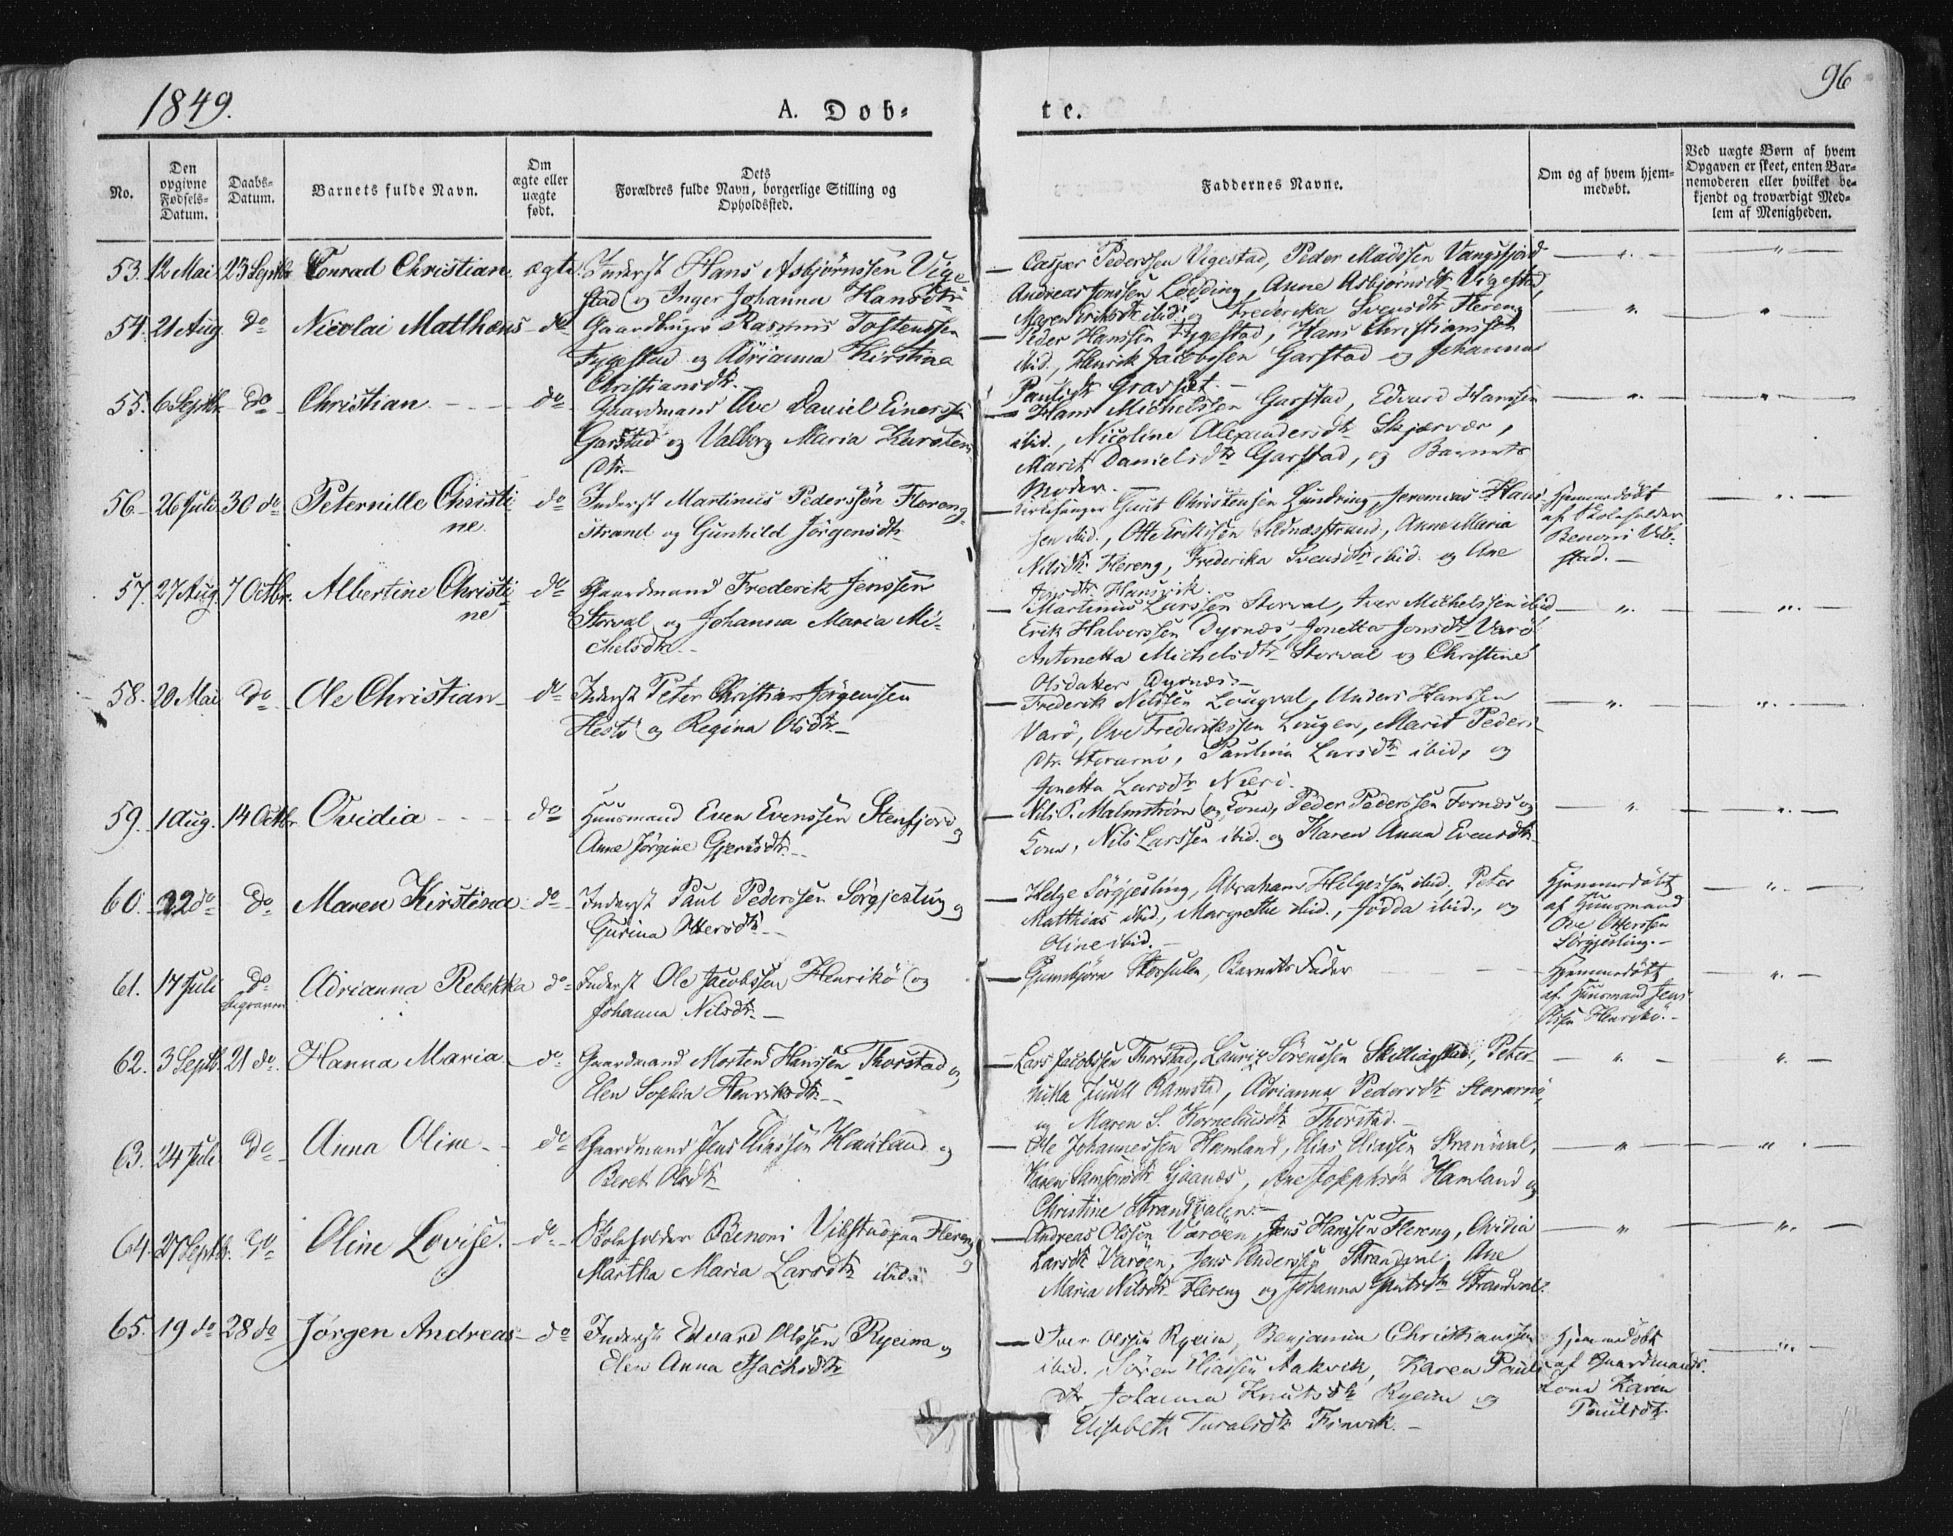 1849.
A. Dob-
te.
96
No.
Den opgivne Fødsels-Datum.
Daabs-Datum.
Barnets fulde Navn.
Om ægte eller uægte født.
Dets Forældres fulde Navn, borgerlige Stilling og Opholdssted.
Faddernes Navne.
Om og af hvem hjem-medøbt.
Ved uægte Børn af hvem Opgaven er skeet, enten Bar-nemoderen eller hvilket be-kjendt og troværdigt Med-lem af Menigheden.
53. 12 Mai 23 Septbr Conrad Christian. ægte. Inderst Hans Asbjørnssen Vige-
stad og Inger Johanna Hansdtr
— Casper Pederssen Vigestad, Peder Madssen Vangsfjord
Andreas Jonssen Lødding, Anne Asbjørnsdtr Vigestad,
Maren Eriksdtr ibid. og Frederika Svensdtr Flereng
54. 21 Aug. do Nicolai Matthæus do Gaardbruger Rasmus Tostenssen
Fygestad og Adrianna Kirstina
Christiansdtr.
— Peder Hanssen Fygestad, Hans Christianssen
ibid., Henrik Jacobssen Garstad og Johanna
Paulsdtr Gravset. —
55. 6 Septbr. do Christian do Gaardmand Ove Daniel Einerssen
Garstad og Valborg Maria Karsten
Dtr.
— Hans Michelssen Garstad, Edvard Hanssen
ibid., Nicoline Alexandersdtr Skjærvær,
Marit Danielsdtr Garstad, og Barnets
Moder. —
56. 26 Juli 30 do Peternille Christi-
ne. do Inderst Martinus Pederssøn Flereng-
strand og Gunhild Jørgensdtr
— Kirkesanger Gunt Christensen Lundring, Jeremias Hans
sen ibid., Otte Erikssøn Sildnæsstrand, Anne Maria
Nilsdtr Flereng, Frederika Svensdtr ibid. og Ane
Jensdtr Hansvik.
Hjemmedøbt
af Skoleholder
Benoni Vib-
stad. —
57. 27 Aug. 7 Octbr. Albertine Christi-
ne do Gaardmand Frederik Jenssen
Storval og Johanna Maria Mi-
chelsdtr. —
— Martinus Larssen Storval, Iver Michelssen ibid
Erik Halvorssen Dyrnæs, Jonetta Jonsdtr Varø
Antonetta Michelsdtr Storval og Christine
Olsdatter Dyrnæs. —
58. 20 Mai do Ole Christian do Inderst Peter Christian Jørgenssen
Hestø og Regina Olsdtr. —
— Frederik Nilssen Lougval, Anders Hanssen
Varø, Ove Frederikssen Lougen, Marit Peders-
Dtr. Storarnø, Paulina Larsdtr ibid., og
Jonetta Larsdtr Nærø.
59. 1 Aug. 14 Octbr Ovidia do Huusmand Even Evenssen Stenfjord og
Anne Jørgine Gjertsdtr. —
— Nils P. Malmstrøm og Kona, Peder Pederssen Fornæs og
Kona, Nils Larssen ibid. og Karen Anna Evensdtr.
60. 22 do do Maren Kirstina do Inderst Paul Pederssen Sørgjesling og
Gurina Ottersdtr. —
— Helge Sørgjesling, Abraham Helgessen ibid. Peter
Matthias ibid., Margrethe ibid., Jødda ibid., og
Oline ibid. —
Hjemmedøbt
af Huusmand
Ove Otterssen
Sørgjesling. —
61. 17 Juli do Adrianna Rebekka do Inderst Ole Jacobssen Henrikø og
Johanna Nilsdtr. —
— Gunnbjørn Storsulen, Barnets Fader
Hjemmedøbt
af Huusmand Jens
Olssen Henrikø. —
62. 3 Septb. 21 do. Hanna Maria do Gaardmand Morten Hanssen Thorstad og
Elen Sophia Henriksdtr. —
— Lars Jacobssen Thorstad, Lauriz Sørenssen Skillingstad, Peter-
nilla Juull Ramstd, Adrianna Pedersdtr Storarnø,
og Maren S. Korneliusdtr Thorstad. —
63. 24 Juli do Anna Oline do Gaardmand Jens Eliassøn Hamland og
Beret Olsdtr
— Ole Johannessen Hamland, Elias Eliassen Strandval,
Karen Samsonsdtr, Ane Josephsdtr Hamland og
Christine Strandvalen. —
64. 27 Septb. do Oline Lovise. do Skoleholder Benoni Vibstad paa Flereng og
Martha Maria Larsdtr ibid.
— Andreas Olssen Varøen, Jens Hanssen Flereng, Ovidia
Larsdtr Varøen, Jens Anderssen Strandval, Ane
Maria Nilsdtr Flereng og Johanna Guntsdtr Strandval.
65. 19 do 28 do Jørgen Andreas do Inderst Edvard Olssen Ryeim og
Elen Anna Isachsdtr
— Iver Olssen Ryeim, Benjamin Christianssen
ibid., Søren Eliassen Aakvik, Karen Pauls-
Dtr, Johanna Knutsdtr Ryeim og
Elisabeth Turalsdtr Finvik. —
Hjemmedøbt
af Gaardmands-
kona Karen
Paulsdtr